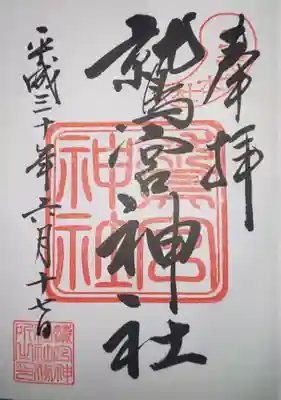 奉拝
鷲宮神社
平成三十年六月十七日
鷲宮神社